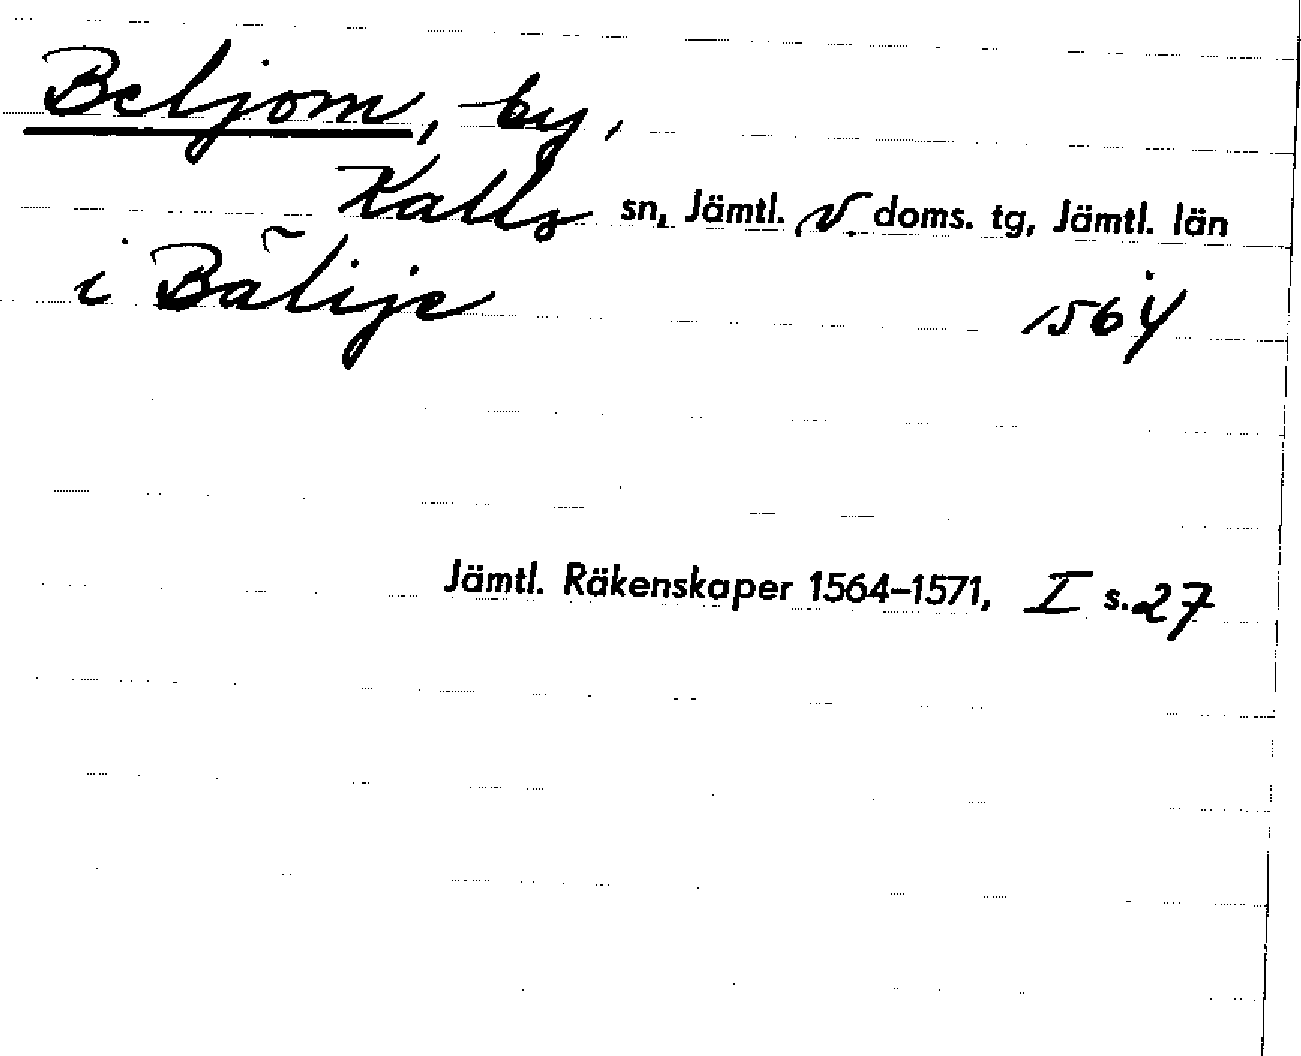 Beljom, by,
Kalls sn, Jämtl. v. doms. tg, Jämtl. län
i Bãlije 1564
Jämtl. Räkenskaper 1564–1571, I s. 27